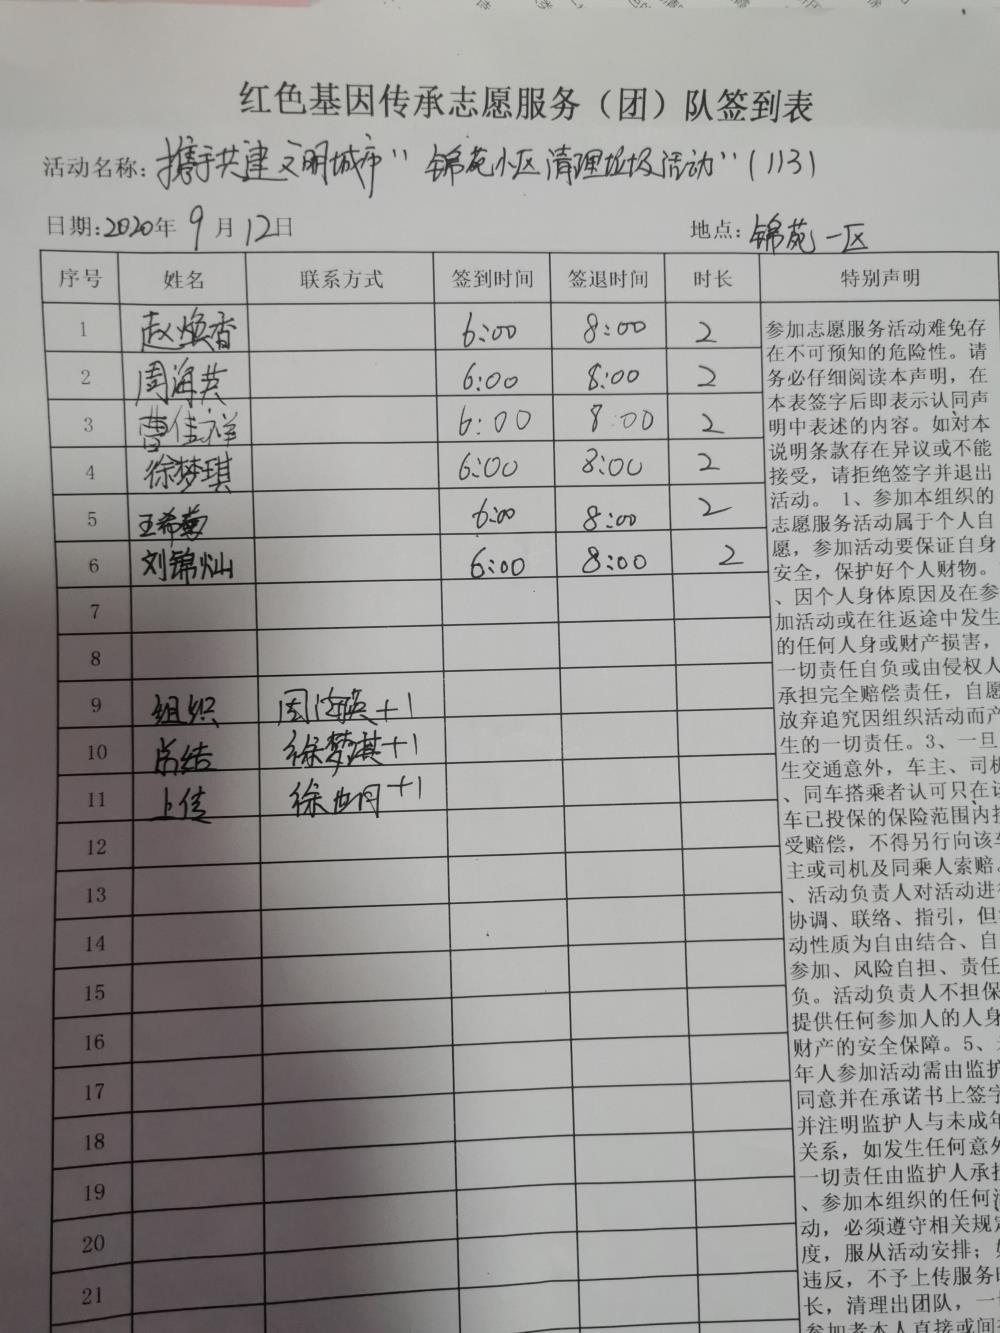 红色基因传承志愿服务（团）队签到表
活动名称：携手共建文明城市"锦苑小区清理垃圾活动"（113）
日期：2020年9月12日 地点：锦苑一区
序号 姓名 联系方式 签到时间 签退时间 时长 特别声明
1 赵焕香 6:00 8:00 2
2 周海英 6:00 8:00 2
3 曹佳祥 6:00 8:00 2
4 徐梦琪 6:00 8:00 2
5 王希菊 6:00 8:00 2
6 刘锦灿 6:00 8:00 2
7
8
9 组织 周海英+1
10 总结 徐梦琪+1
11 上传 徐世月+1
12
13
14
15
16
17
18
19
20
21
参加志愿服务活动难免存
在不可预知的危险性。请
务必仔细阅读本声明，在
本表签字后即表示认同声
明中表述的内容。如对本
说明条款存在异议或不能
接受，请拒绝签字并退出
活动。1、参加本组织的
志愿服务活动属于个人自
愿，参加活动要保证自身
安全，保护好个人财物。
、因个人身体原因及在参
加活动或在往返途中发生
的任何人身或财产损害，
一切责任自负或由侵权人
承担完全赔偿责任，自愿
放弃追究因组织活动而产
生的一切责任。3、一旦
生交通意外，车主、司机
、同车搭乘者认可只在该
车已投保的保险范围内接
受赔偿，不得另行向该车
主或司机及同乘人索赔。
、活动负责人对活动进行
协调、联络、指引，但
动性质为自由结合、自
参加、风险自担、责任
负。活动负责人不担保
提供任何参加人的人身
财产的安全保障。5、
年人参加活动需由监护
同意并在承诺书上签字
并注明监护人与未成年
关系，如发生任何意外
一切责任由监护人承担
、参加本组织的任何活
动，必须遵守相关规定
度，服从活动安排；
违反，不予上传服务时
长，清理出团队，一
参加者本人直接或间接